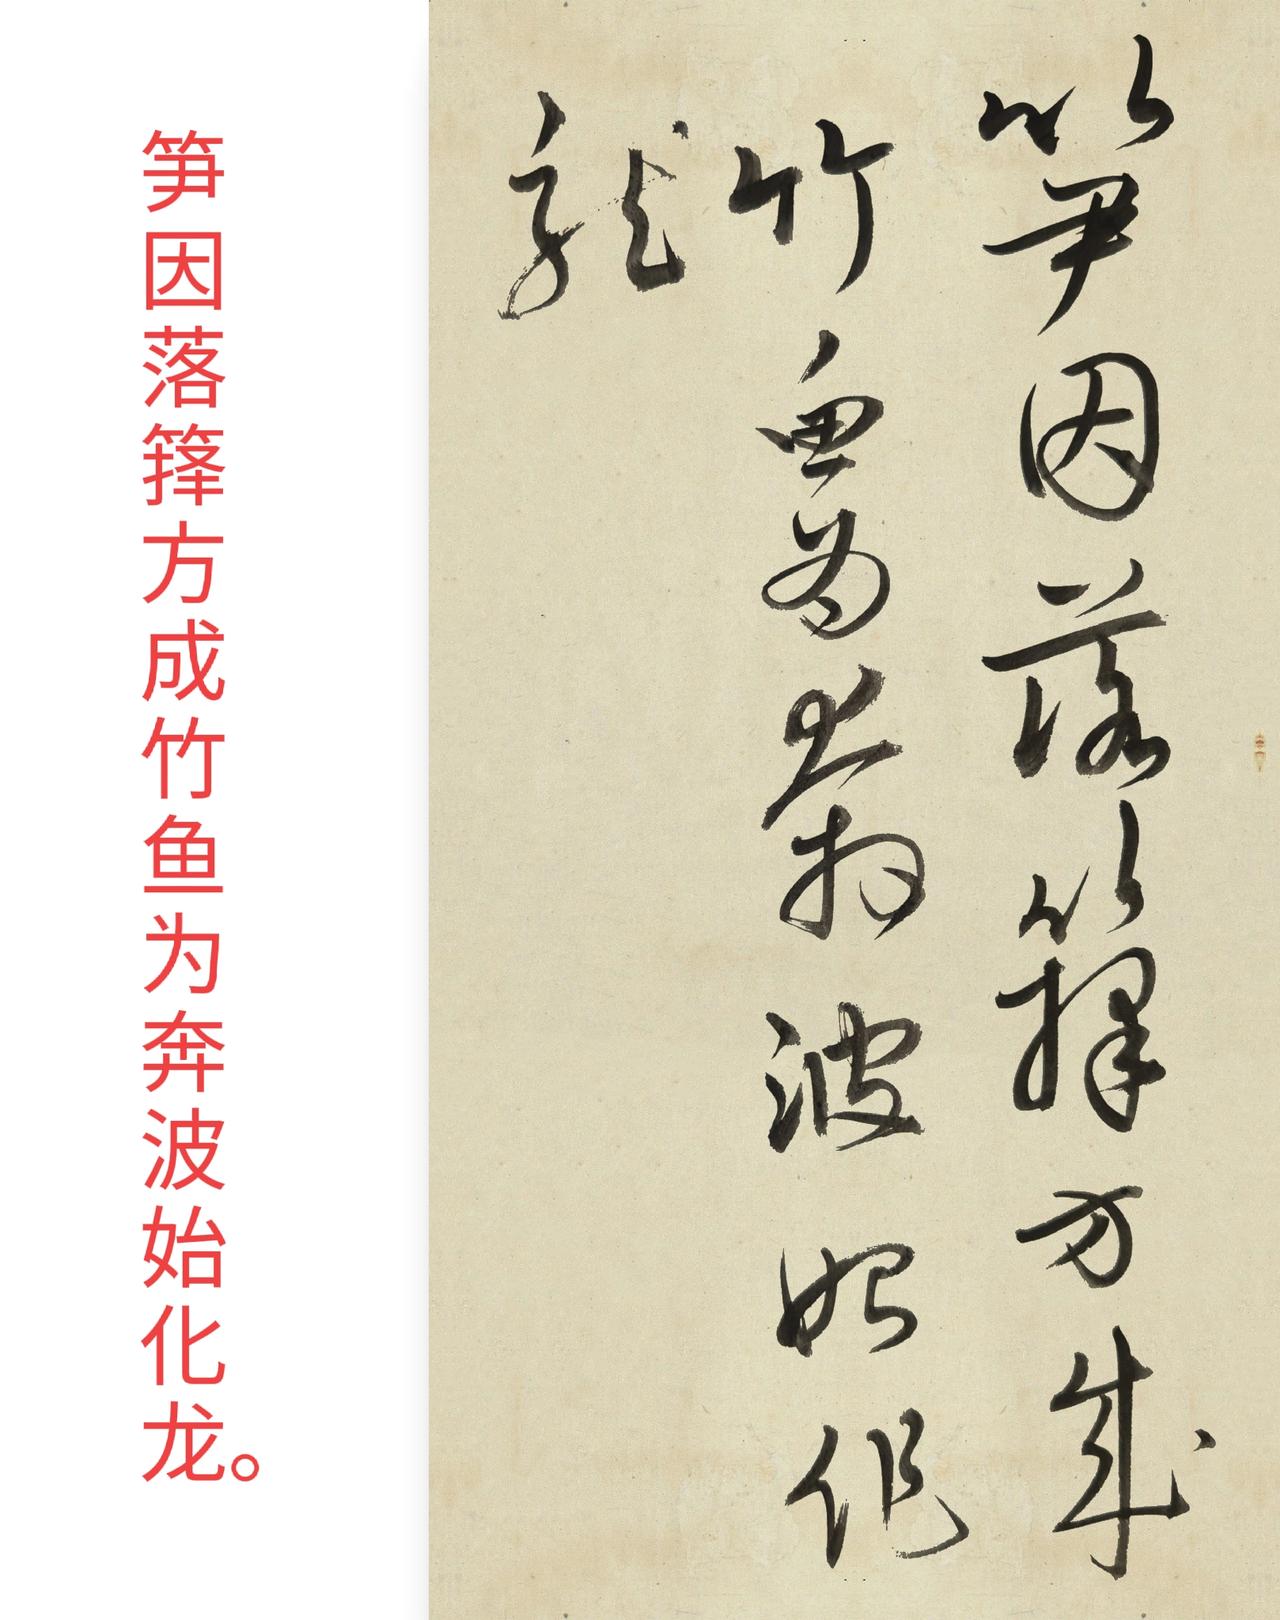 笋因落籜方成
竹魚為奔波始化
龍
笋因落箨方成竹鱼为奔波始化龙。